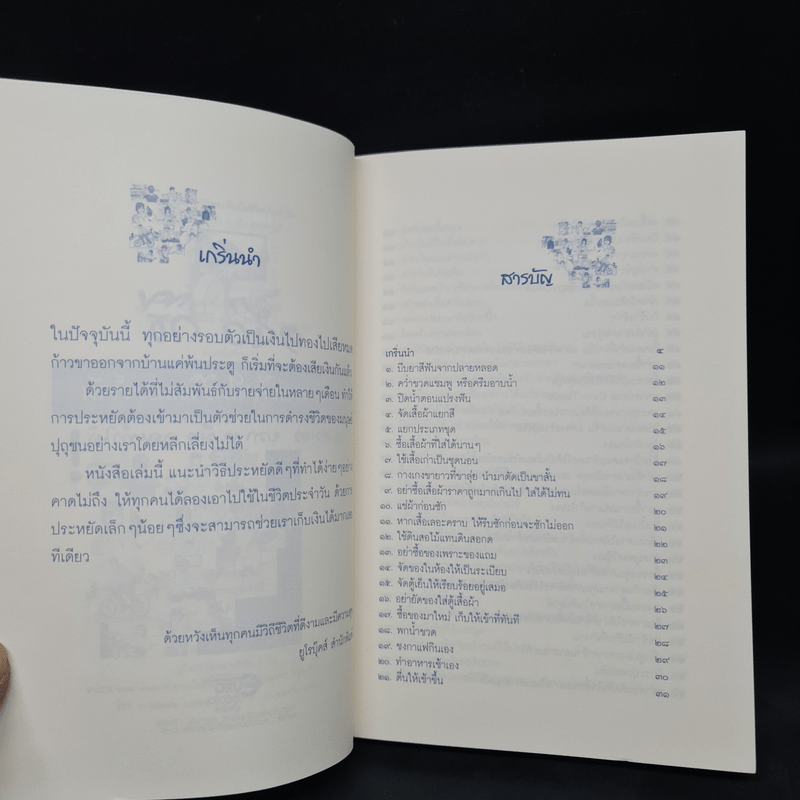 เกริ่นนำ
ในปัจจุบันนี้ ทุกอย่างรอบตัวเป็นเงินไปทองไปเสียหมด
ก้าวขาออกจากบ้านแค่พ้นประตู ก็เริ่มที่จะต้องเสียเงินกันแล้ว
ด้วยรายได้ที่ไม่สัมพันธ์กับรายจ่ายในหลายๆเดือน ทำให้
การประหยัดต้องเข้ามาเป็นตัวช่วยในการดำรงชีวิตของมนุษย์
ปุถุชนอย่างเราโดยหลีกเลี่ยงไม่ได้
หนังสือเล่มนี้ แนะนำวิธีประหยัดดีๆที่ทำได้ง่ายๆอย่าง
คาดไม่ถึง ให้ทุกคนได้ลองเอาไปใช้ในชีวิตประจำวัน ด้วยการ
ประหยัดเล็กๆน้อยๆซึ่งจะสามารถช่วยเราเก็บเงินได้มากเลย
ทีเดียว
ด้วยหวังเห็นทุกคนมีวิถีชีวิตที่ดีงามและมีความสุข
ยูโรบุ๊คส์ สำนักพิมพ์
สารบัญ
เกริ่นนำ ๕
๑. บีบยาสีฟันจากปลายหลอด ๑๑
๒. คว่ำขวดแชมพู หรือครีมอาบน้ำ ๑๒
๓. ปิดน้ำตอนแปรงฟัน ๑๓
๔. จัดเสื้อผ้าแยกสี ๑๔
๕. แยกประเภทชุด ๑๕
๖. ซื้อเสื้อผ้าที่ใส่ได้นานๆ ๑๖
๗. ใช้เสื้อเก่าเป็นชุดนอน ๑๗
๘. กางเกงขายาวที่ขาลุ่ย นำมาตัดเป็นขาสั้น ๑๘
๙. อย่าซื้อเสื้อผ้าราคาถูกมากเกินไป ใส่ได้ไม่ทน ๑๙
๑๐. แช่ผ้าก่อนซัก ๒๐
๑๑. หากเสื้อเลอะคราบ ให้รีบซักก่อนจะซักไม่ออก ๒๑
๑๒. ใช้ดินสอไม้แทนดินสอกด ๒๒
๑๓. อย่าซื้อของเพราะของแถม ๒๓
๑๔. จัดของในห้องให้เป็นระเบียบ ๒๔
๑๕. จัดตู้เย็นให้เรียบร้อยอยู่เสมอ ๒๕
๑๖. อย่ายัดของใส่ตู้เสื้อผ้า ๒๖
๑๗. ซื้อของมาใหม่ เก็บให้เข้าที่ทันที ๒๗
๑๘. พกน้ำขวด ๒๘
๑๙. ชงกาแฟกินเอง ๒๙
๒๐. ทำอาหารเช้าเอง ๓๐
๒๑. ตื่นให้เช้าขึ้น ๓๑